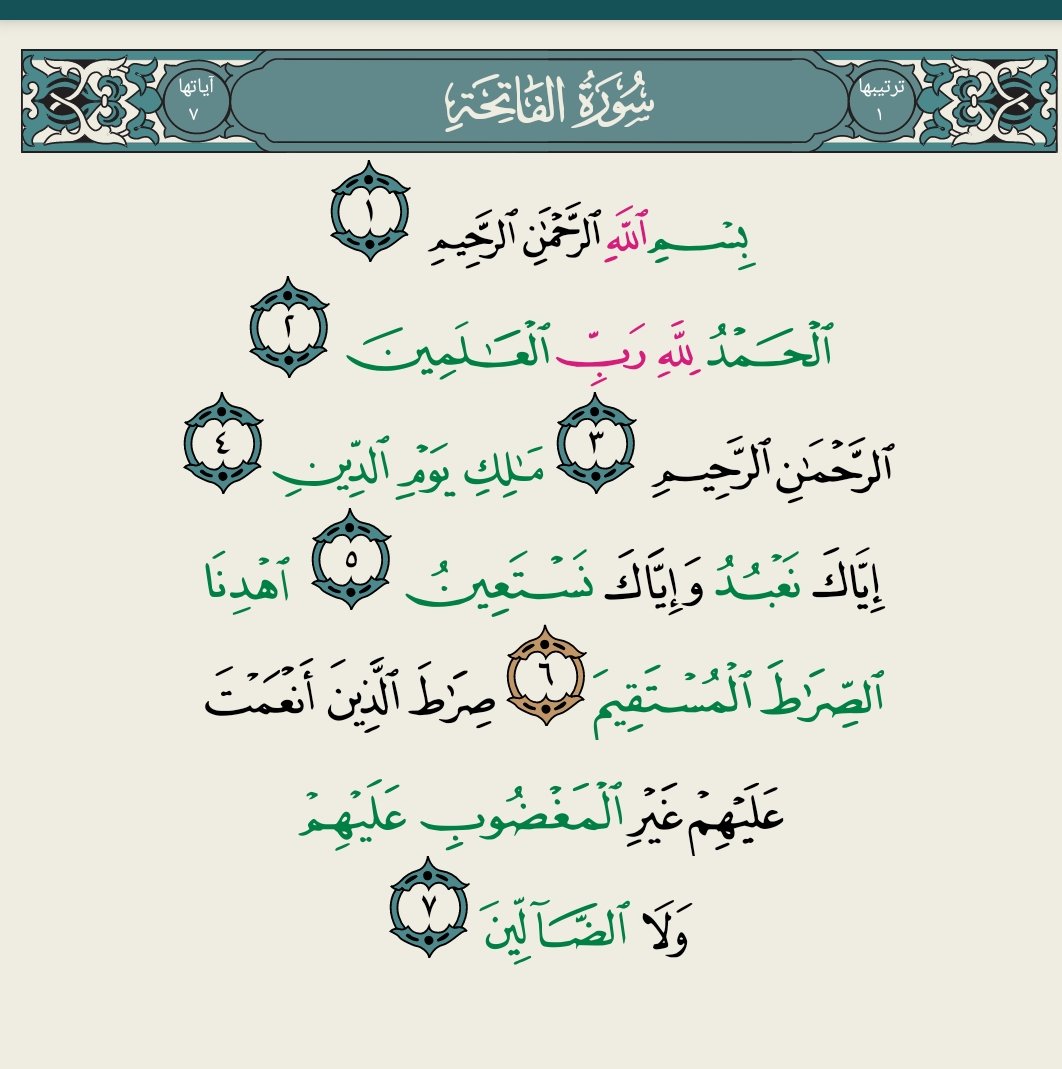 ترتيبها ١ سُورَةُ الفَاتِحَةِ آياتها ٧
بِسۡمِ ٱللَّهِ ٱلرَّحۡمَٰنِ ٱلرَّحِيمِ ١
ٱلۡحَمۡدُ لِلَّهِ رَبِّ ٱلۡعَٰلَمِينَ ٢
ٱلرَّحۡمَٰنِ ٱلرَّحِيمِ ٣ مَٰلِكِ يَوۡمِ ٱلدِّينِ ٤
إِيَّاكَ نَعۡبُدُ وَإِيَّاكَ نَسۡتَعِينُ ٥ ٱهۡدِنَا
ٱلصِّرَٰطَ ٱلۡمُسۡتَقِيمَ ٦ صِرَٰطَ ٱلَّذِينَ أَنۡعَمۡتَ
عَلَيۡهِمۡ غَيۡرِ ٱلۡمَغۡضُوبِ عَلَيۡهِمۡ
وَلَا ٱلضَّآلِّينَ ٧